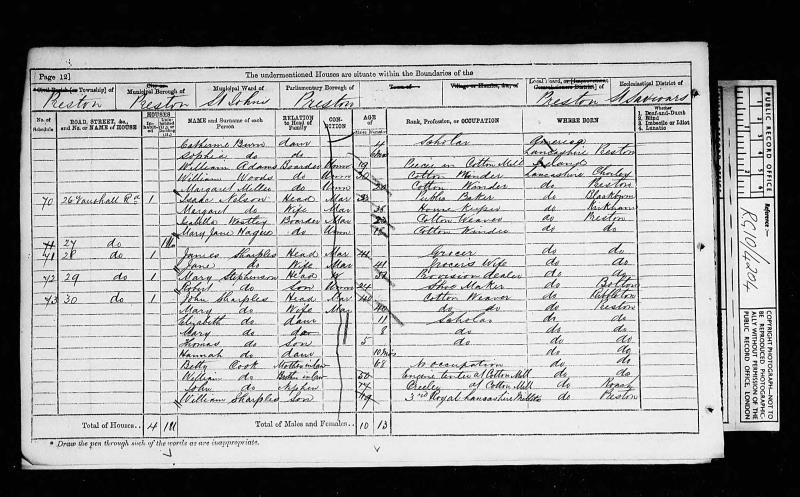 Page 12]
The undermentioned Houses are situate within the Boundaries of the
Civil Parish [or Township] of
City or
Municipal Borough of
Municipal Ward of
Parliamentary Borough of
Town of
Village or Hamlet, &c., of
Local Board, or [Improvement
Commissioners District] of
Ecclesiastical District of
Preston Preston St Johns Preston Preston St Saviours
No. of Schedule
ROAD, STREET, &c., and No. or NAME of HOUSE
HOUSES
NAME and Surname of each Person
RELATION to Head of Family
CON-DITION
AGE of
Rank, Profession, or OCCUPATION
WHERE BORN
Whether
1 Deaf-and-Dumb
2 Blind
3 Imbecile or Idiot
4 Lunatic
Catherine Burn daur 4 Scholar America
Sophia do do Lancashire Preston
William Adams Boarder Unm 19 in Cotton Mill Ireland
William Woods do Unm 20 Cotton Winder Lancashire Chorley
Margaret Miller do Unm Cotton Winder do Preston
70 26 Vauxhall Rd 1 Isaac Nelson Head Mar Baker do Blackburn
Margaret do Wife Mar House Keeper do Kirkham
Westley Boarder Mar Cotton Weaver do Preston
Mary Jane Hague do Unm Cotton Winder do do
27 do 1U
71 28 do 1 James Sharples Head Mar 41 Grocer do do
Jane do Wife Mar 41 Grocers Wife do do
72 29 do 1 Mary Stephenson Head W Provision dealer do do
Robert do Son Unm 24 Shoe Maker do Bolton
73 30 do 1 John Sharples Head Mar 40 Cotton Weaver do
Mary do Wife Mar 40 do do do Preston
Elizabeth do daur Scholar do do
Mary do daur 8 do do do
Thomas do Son 5 do do do
Hannah do daur 10 mos do do
Betty Cook Mother in law 68 No occupation do do
William do Brother in law Engine tenter at Cotton Mill do do
John do Nephew at Cotton Mill do
William Sharples Son 19 3rd Royal Lancashire Militia do Preston
Total of Houses.. 4 1U
Total of Males and Females.. 10 13
* Draw the pen through such of the words as are inappropriate.
PUBLIC RECORD OFFICE
Reference :-
RG10/4204
COPYRIGHT PHOTOGRAPH-NOT TO BE REPRODUCED PHOTOGRAPHIC-ALLY WITHOUT PERMISSION OF THE PUBLIC RECORD OFFICE, LONDON